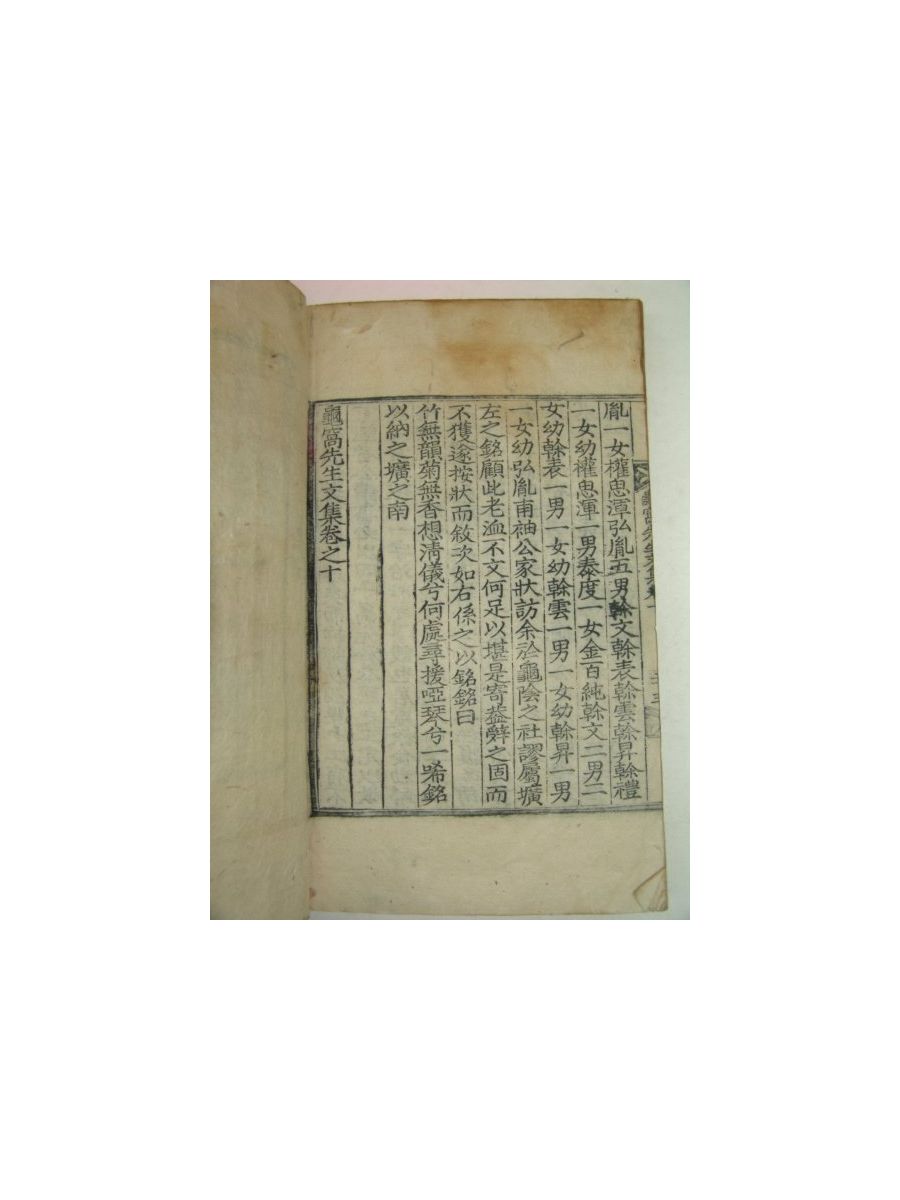 胤一女權思渾弘胤五男榦文榦表榦雲榦昇榦禮
一女幼權思渾一男泰度一女金百純榦文二男二
女幼榦表一男一女幼榦雲一男一女幼榦昇一男
一女幼弘胤甫袖公家狀訪余於龜陰之社謬屬壙
左之銘顧此老洫不文何足以堪是寄益辭之固而
不獲遂按狀而敘次如右係之以銘銘曰
竹無韻菊無香想淸儀兮何處尋援啞琴兮一唏銘
以納之壙之南
龜窩先生文集卷之十